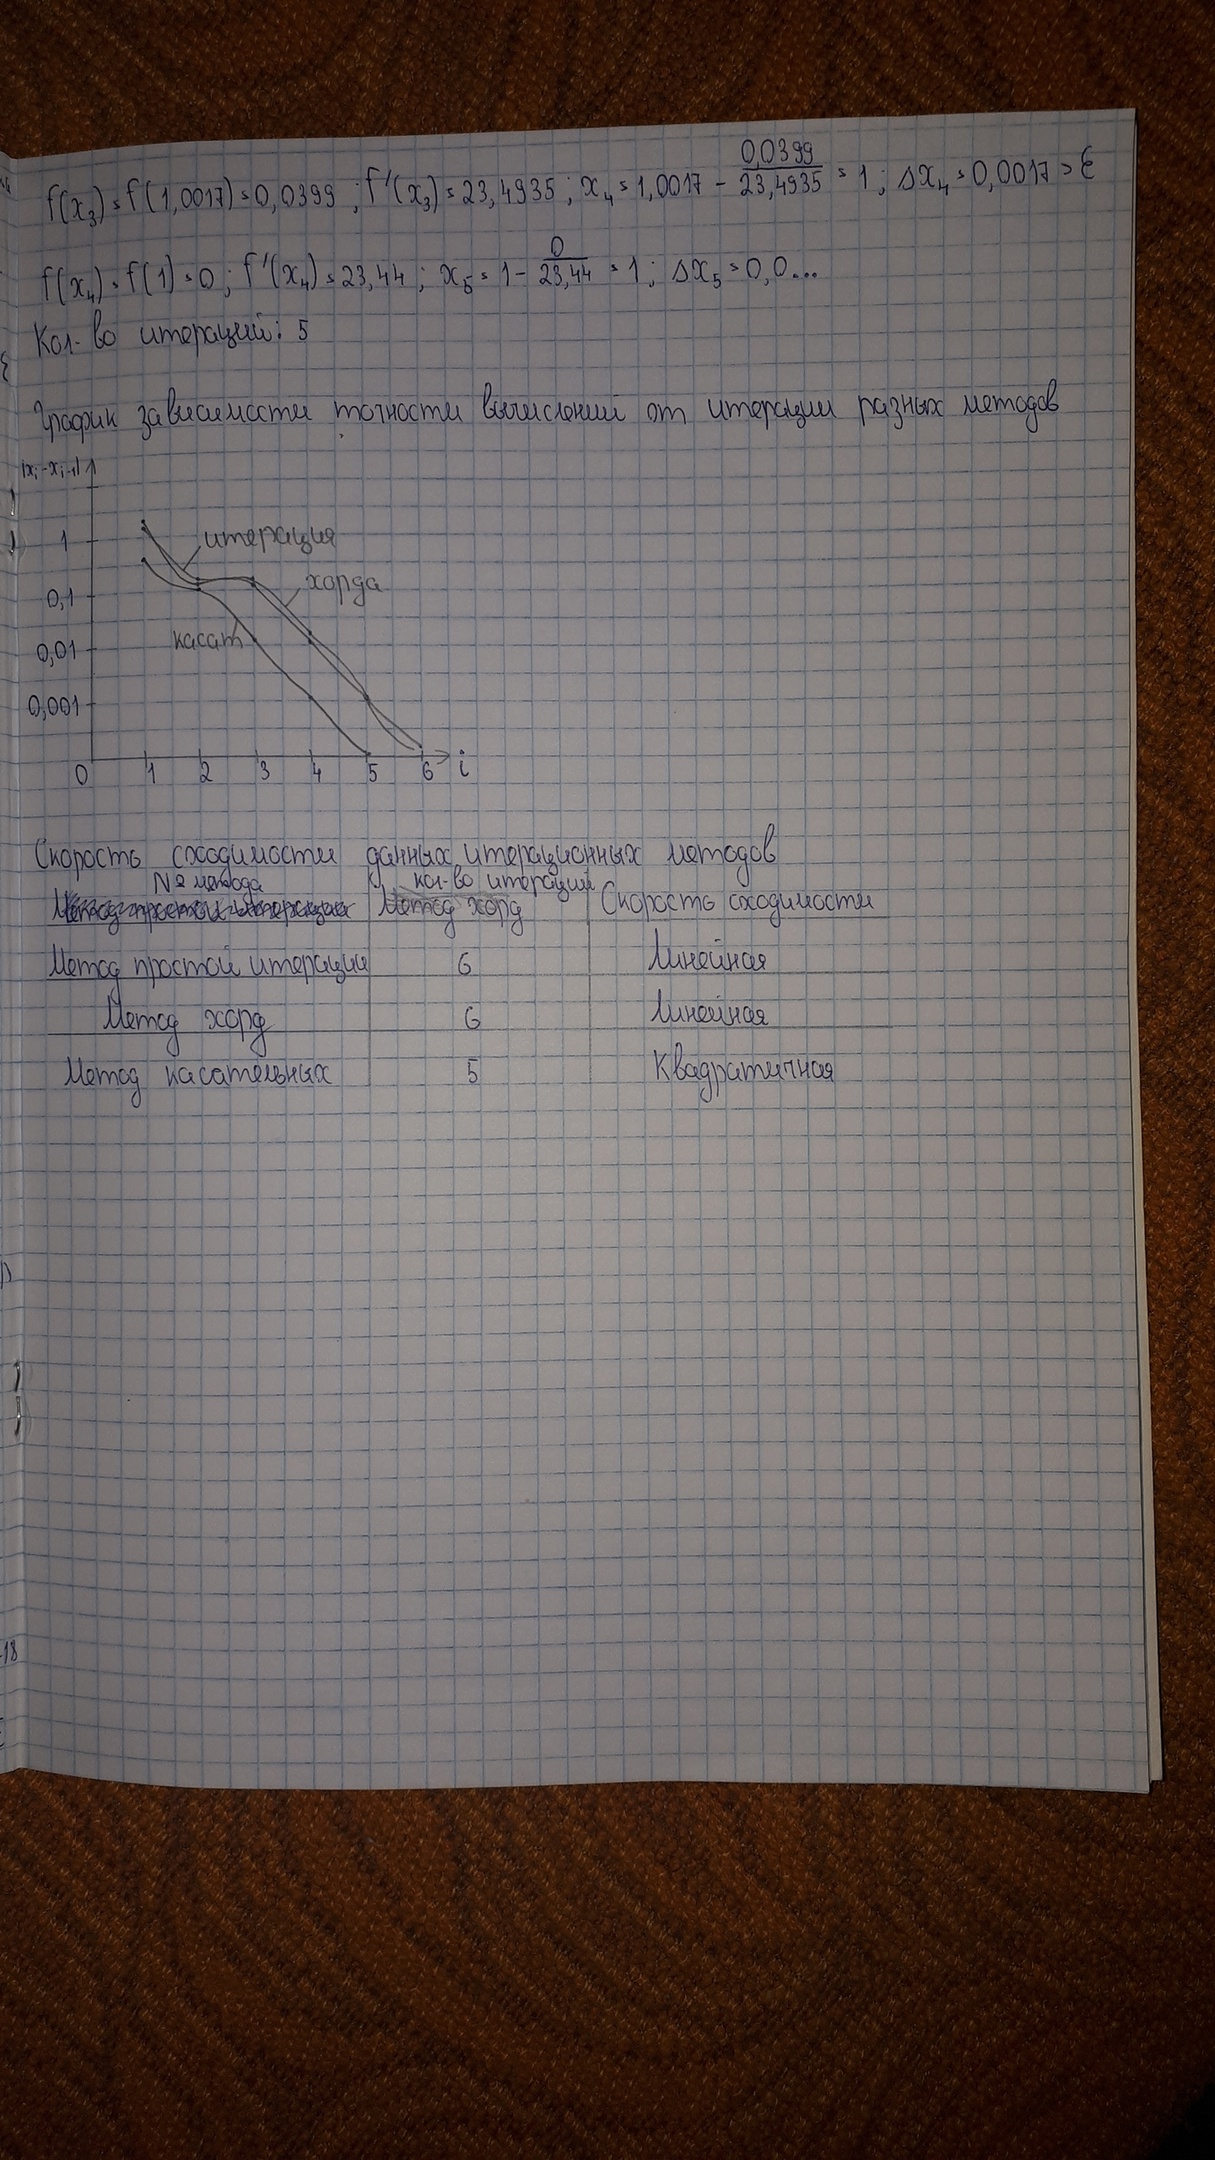 f(x₃) = f(1,0017) = 0,0399 ; f'(x₃) = 23,4935 ; x₄ = 1,0017 - 0,0399/23,4935 = 1 ; Δx₄ = 0,0017 > ε
f(x₄) = f(1) = 0 ; f'(x₄) = 23,44 ; x₅ = 1 - 0/23,44 = 1 ; Δx₅ = 0,0...
Кол-во итераций: 5
График зависимости точности вычислений от итерации разных методов
|xᵢ-xᵢ₋₁|
1
0,1
0,01
0,001
итерация
хорда
касат
0 1 2 3 4 5 6 i
Скорость сходимости данных итерационных методов
№ метода кол-во итераций Скорость сходимости
Метод хорд
Метод простой итерации 6 Линейная
Метод хорд 6 Линейная
Метод касательных 5 Квадратичная
-18